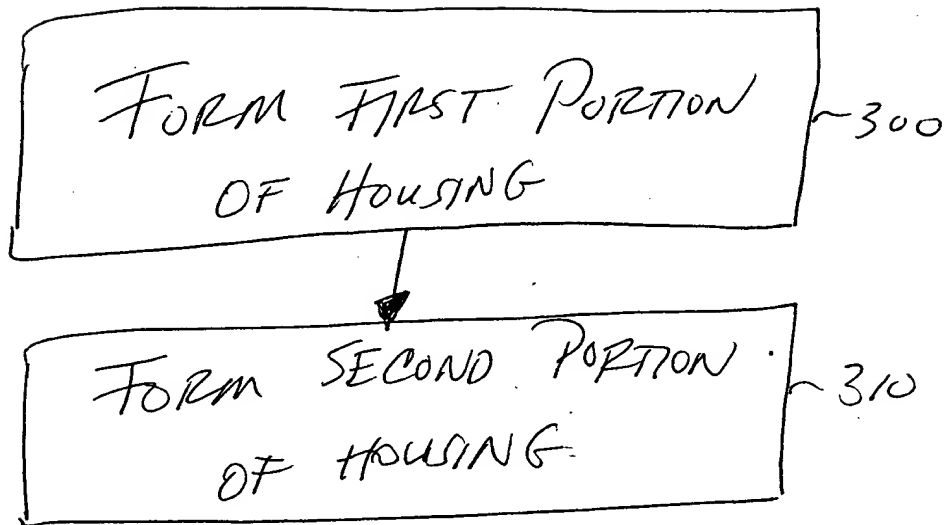 FORM FIRST PORTION
OF HOUSING
300
FORM SECOND PORTION
OF HOUSING
310